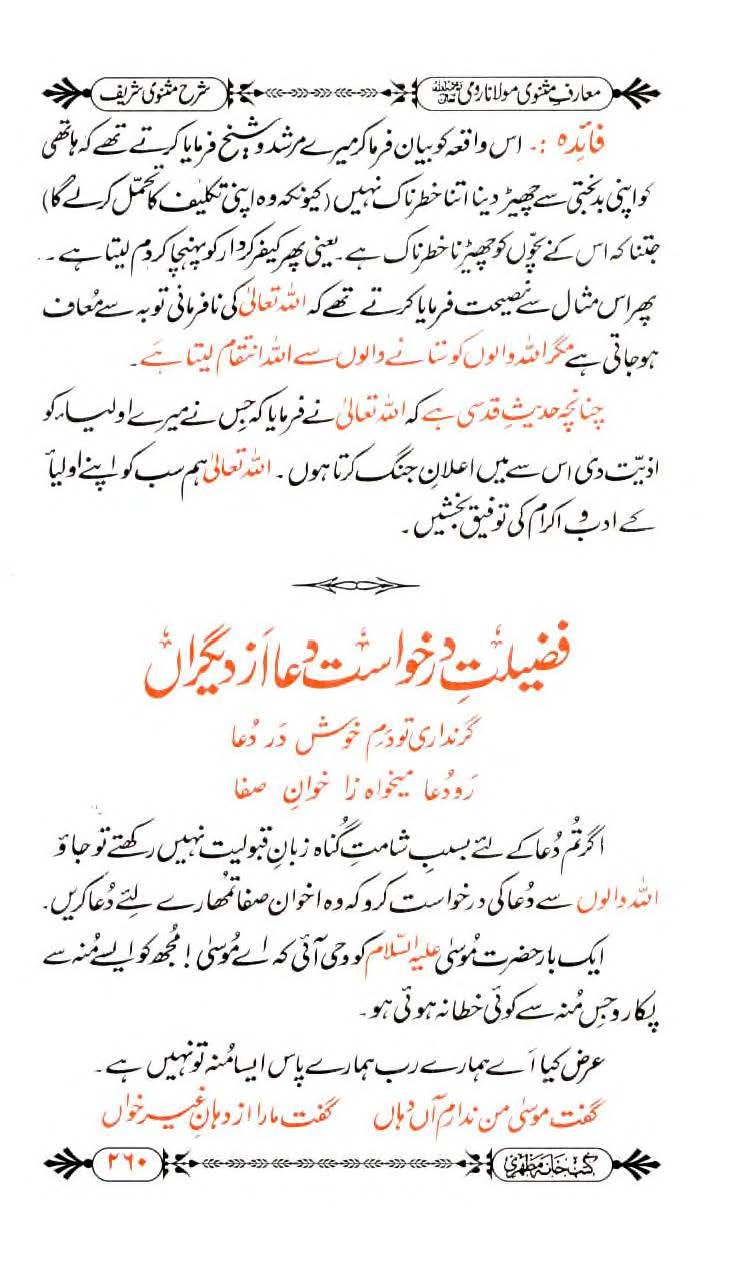 معارف مثنوی مولانا رومی رحمۃ اللہ تعالیٰ علیہ
شرح مثنوی شریف
فائدہ :۔ اس واقعہ کو بیان فرما کر میرے مرشد و شیخ فرمایا کرتے تھے کہ ہاتھی
کو اپنی بدبختی سے چھیڑ دینا اتنا خطرناک نہیں (کیونکہ وہ اپنی تکلیف کا تحمّل کرلے گا)
جتنا کہ اس کے بچّوں کو چھیڑنا خطرناک ہے۔ یعنی پھر کیفر کردار کو پہنچا کر دم لیتا ہے۔
پھر اس مثال سے نصیحت فرمایا کرتے تھے کہ اللہ تعالیٰ کی نافرمانی توبہ سے مُعاف
ہو جاتی ہے مگر اللہ والوں کو ستانے والوں سے اللہ انتقام لیتا ہے۔
چنانچہ حدیثِ قدسی ہے کہ اللہ تعالیٰ نے فرمایا کہ جس نے میرے اولیاء کو
اذیّت دی اس سے میں اعلانِ جنگ کرتا ہوں۔ اللہ تعالیٰ ہم سب کو اپنے اولیأ
کے ادب و اکرام کی توفیق بخشیں۔
فضیلتِ درخواست دعا از دیگراں
گر نداری تو دَمِ خوش دَر دُعا
رَو دُعا میخواہ زا خوانِ صفا
اگر تُم دُعا کے لئے بسببِ شامتِ گُناہ زبانِ قبولیت نہیں رکھتے تو جاؤ
اللہ والوں سے دُعا کی درخواست کرو کہ وہ اخوان صفا تمُھارے لئے دُعا کریں۔
ایک بار حضرت مُوسیٰ علیہ السّلام کو وحی آئی کہ اے مُوسیٰ! مُجھ کو ایسے مُنہ سے
پکارو جس مُنہ سے کوئی خطا نہ ہوئی ہو۔
عرض کیا اَے ہمارے رب ہمارے پاس ایسا مُنہ تو نہیں ہے۔
گفت موسیٰ من ندارم آں دہاں گفت مارا از دہانِ غیر خواں
کتب خانہ مظہری
۲۶۰